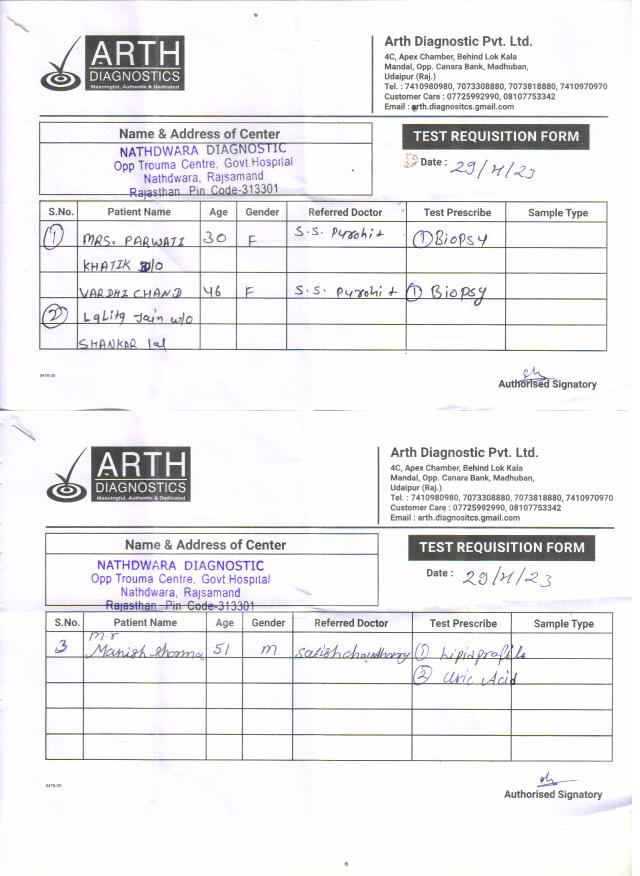 ARTH
DIAGNOSTICS
Meaningful, Authentic & Dedicated
Arth Diagnostic Pvt. Ltd.
4C, Apex Chamber, Behind Lok Kala
Mandal, Opp. Canara Bank, Madhuban,
Udaipur (Raj.)
Tel. : 7410980980, 7073308880, 7073818880, 7410970970
Customer Care : 07725992990, 08107753342
Email : arth.diagnositcs.gmail.com
Name & Address of Center
NATHDWARA DIAGNOSTIC
Opp Trouma Centre, Govt.Hospital
Nathdwara, Rajsamand
Rajasthan Pin Code-313301
TEST REQUISITION FORM
Date : 29/4/23
S.No. Patient Name Age Gender Referred Doctor Test Prescribe Sample Type
① MRS. PARWATI 30 F S.S. Purohit ① Biopsy
KHATIK
VARDHI CHAND 46 F S.S. Purohit ① Biopsy
② Lalita Jain w/o
SHANKAR lal
9478-20
Authorised Signatory
ARTH
DIAGNOSTICS
Meaningful, Authentic & Dedicated
Arth Diagnostic Pvt. Ltd.
4C, Apex Chamber, Behind Lok Kala
Mandal, Opp. Canara Bank, Madhuban,
Udaipur (Raj.)
Tel. : 7410980980, 7073308880, 7073818880, 7410970970
Customer Care : 07725992990, 08107753342
Email : arth.diagnositcs.gmail.com
Name & Address of Center
NATHDWARA DIAGNOSTIC
Opp Trouma Centre, Govt.Hospital
Nathdwara, Rajsamand
Rajasthan Pin Code-313301
TEST REQUISITION FORM
Date : 29/4/23
S.No. Patient Name Age Gender Referred Doctor Test Prescribe Sample Type
3 Mr
Manish Sharma 51 M Satish Choudhary ① Lipid profile
② Uric Acid
9478-20
Authorised Signatory